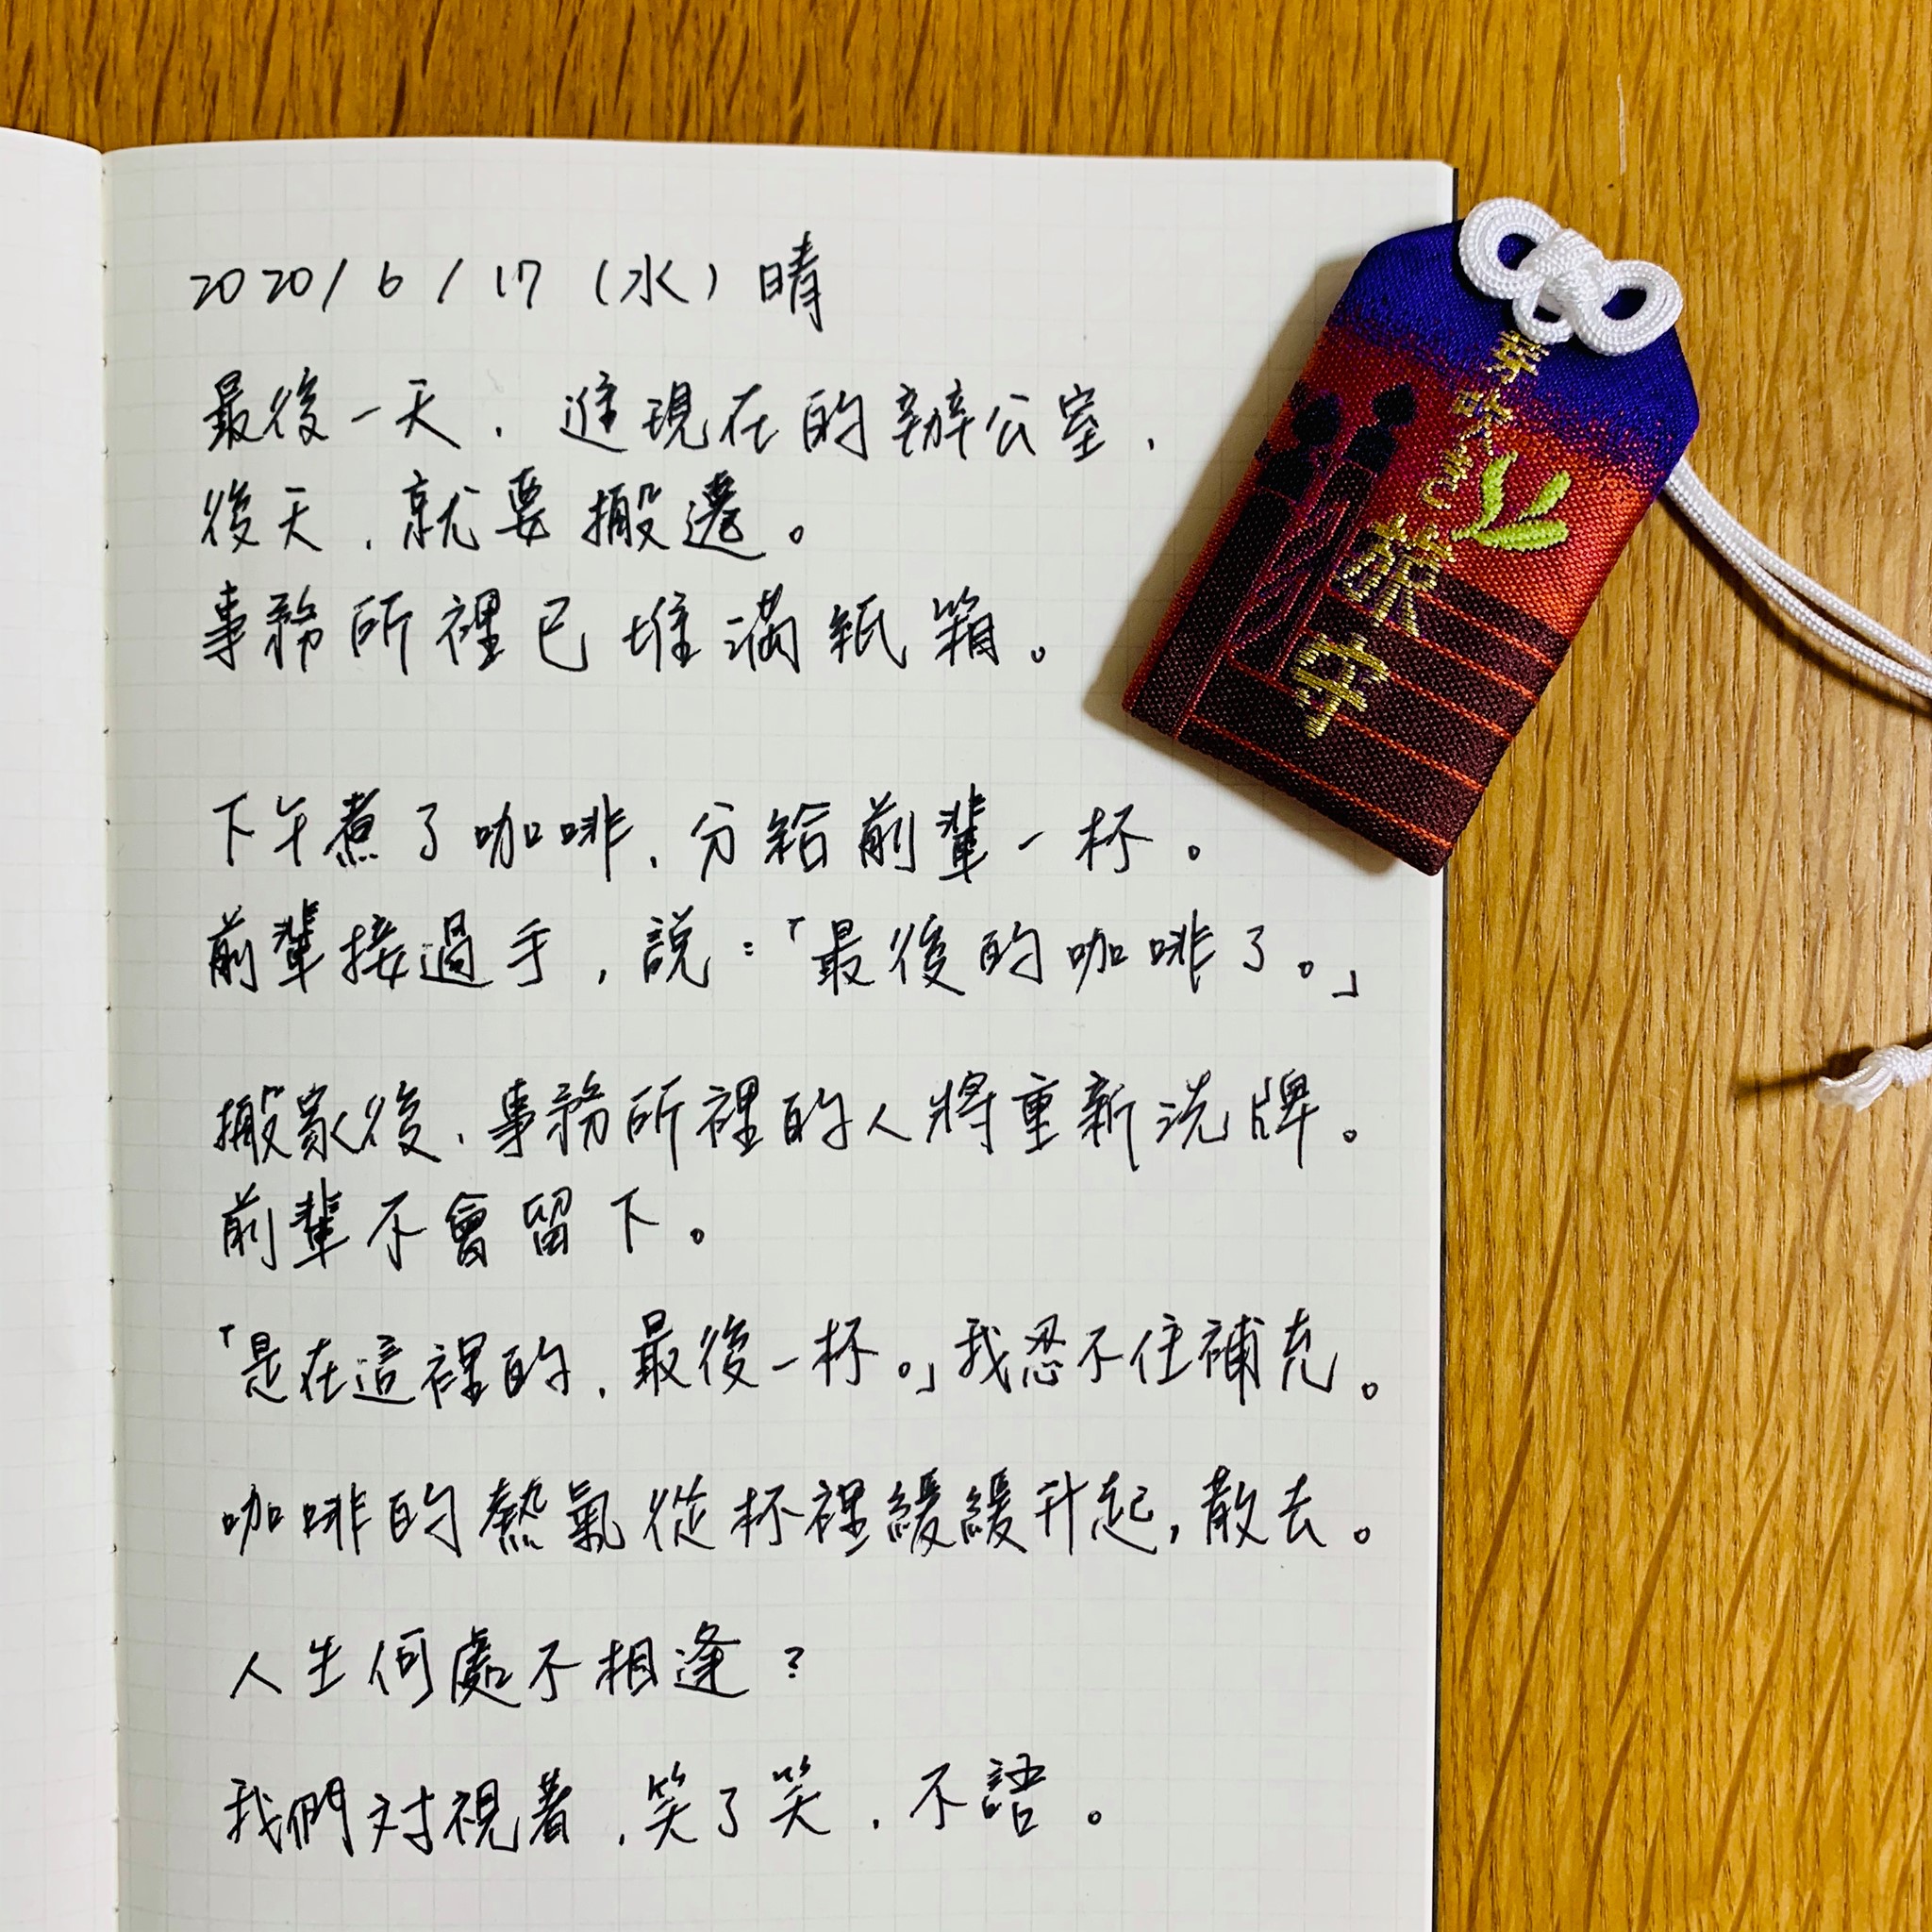 2020/6/17（水）晴
最後一天，進現在的辦公室，
後天，就要搬遷。
事務所裡已堆滿紙箱。
下午煮了咖啡，分給前輩一杯。
前輩接過手，說：「最後的咖啡了。」
搬家後，事務所裡的人將重新洗牌。
前輩不會留下。
「是在這裡的，最後一杯。」我忍不住補充。
咖啡的熱氣從杯裡緩緩升起，散去。
人生何處不相逢？
我們対視著，笑了笑，不語。
芽吹き
旅守